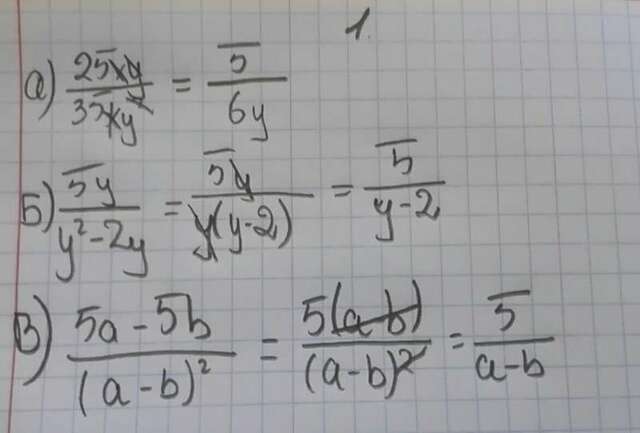 1.
а) 25xy/35xy² = 5/6y
Б) 5y/y²-2y = 5y/y(y-2) = 5/y-2
В) 5a-5b/(a-b)² = 5(a-b)/(a-b)² = 5/a-b